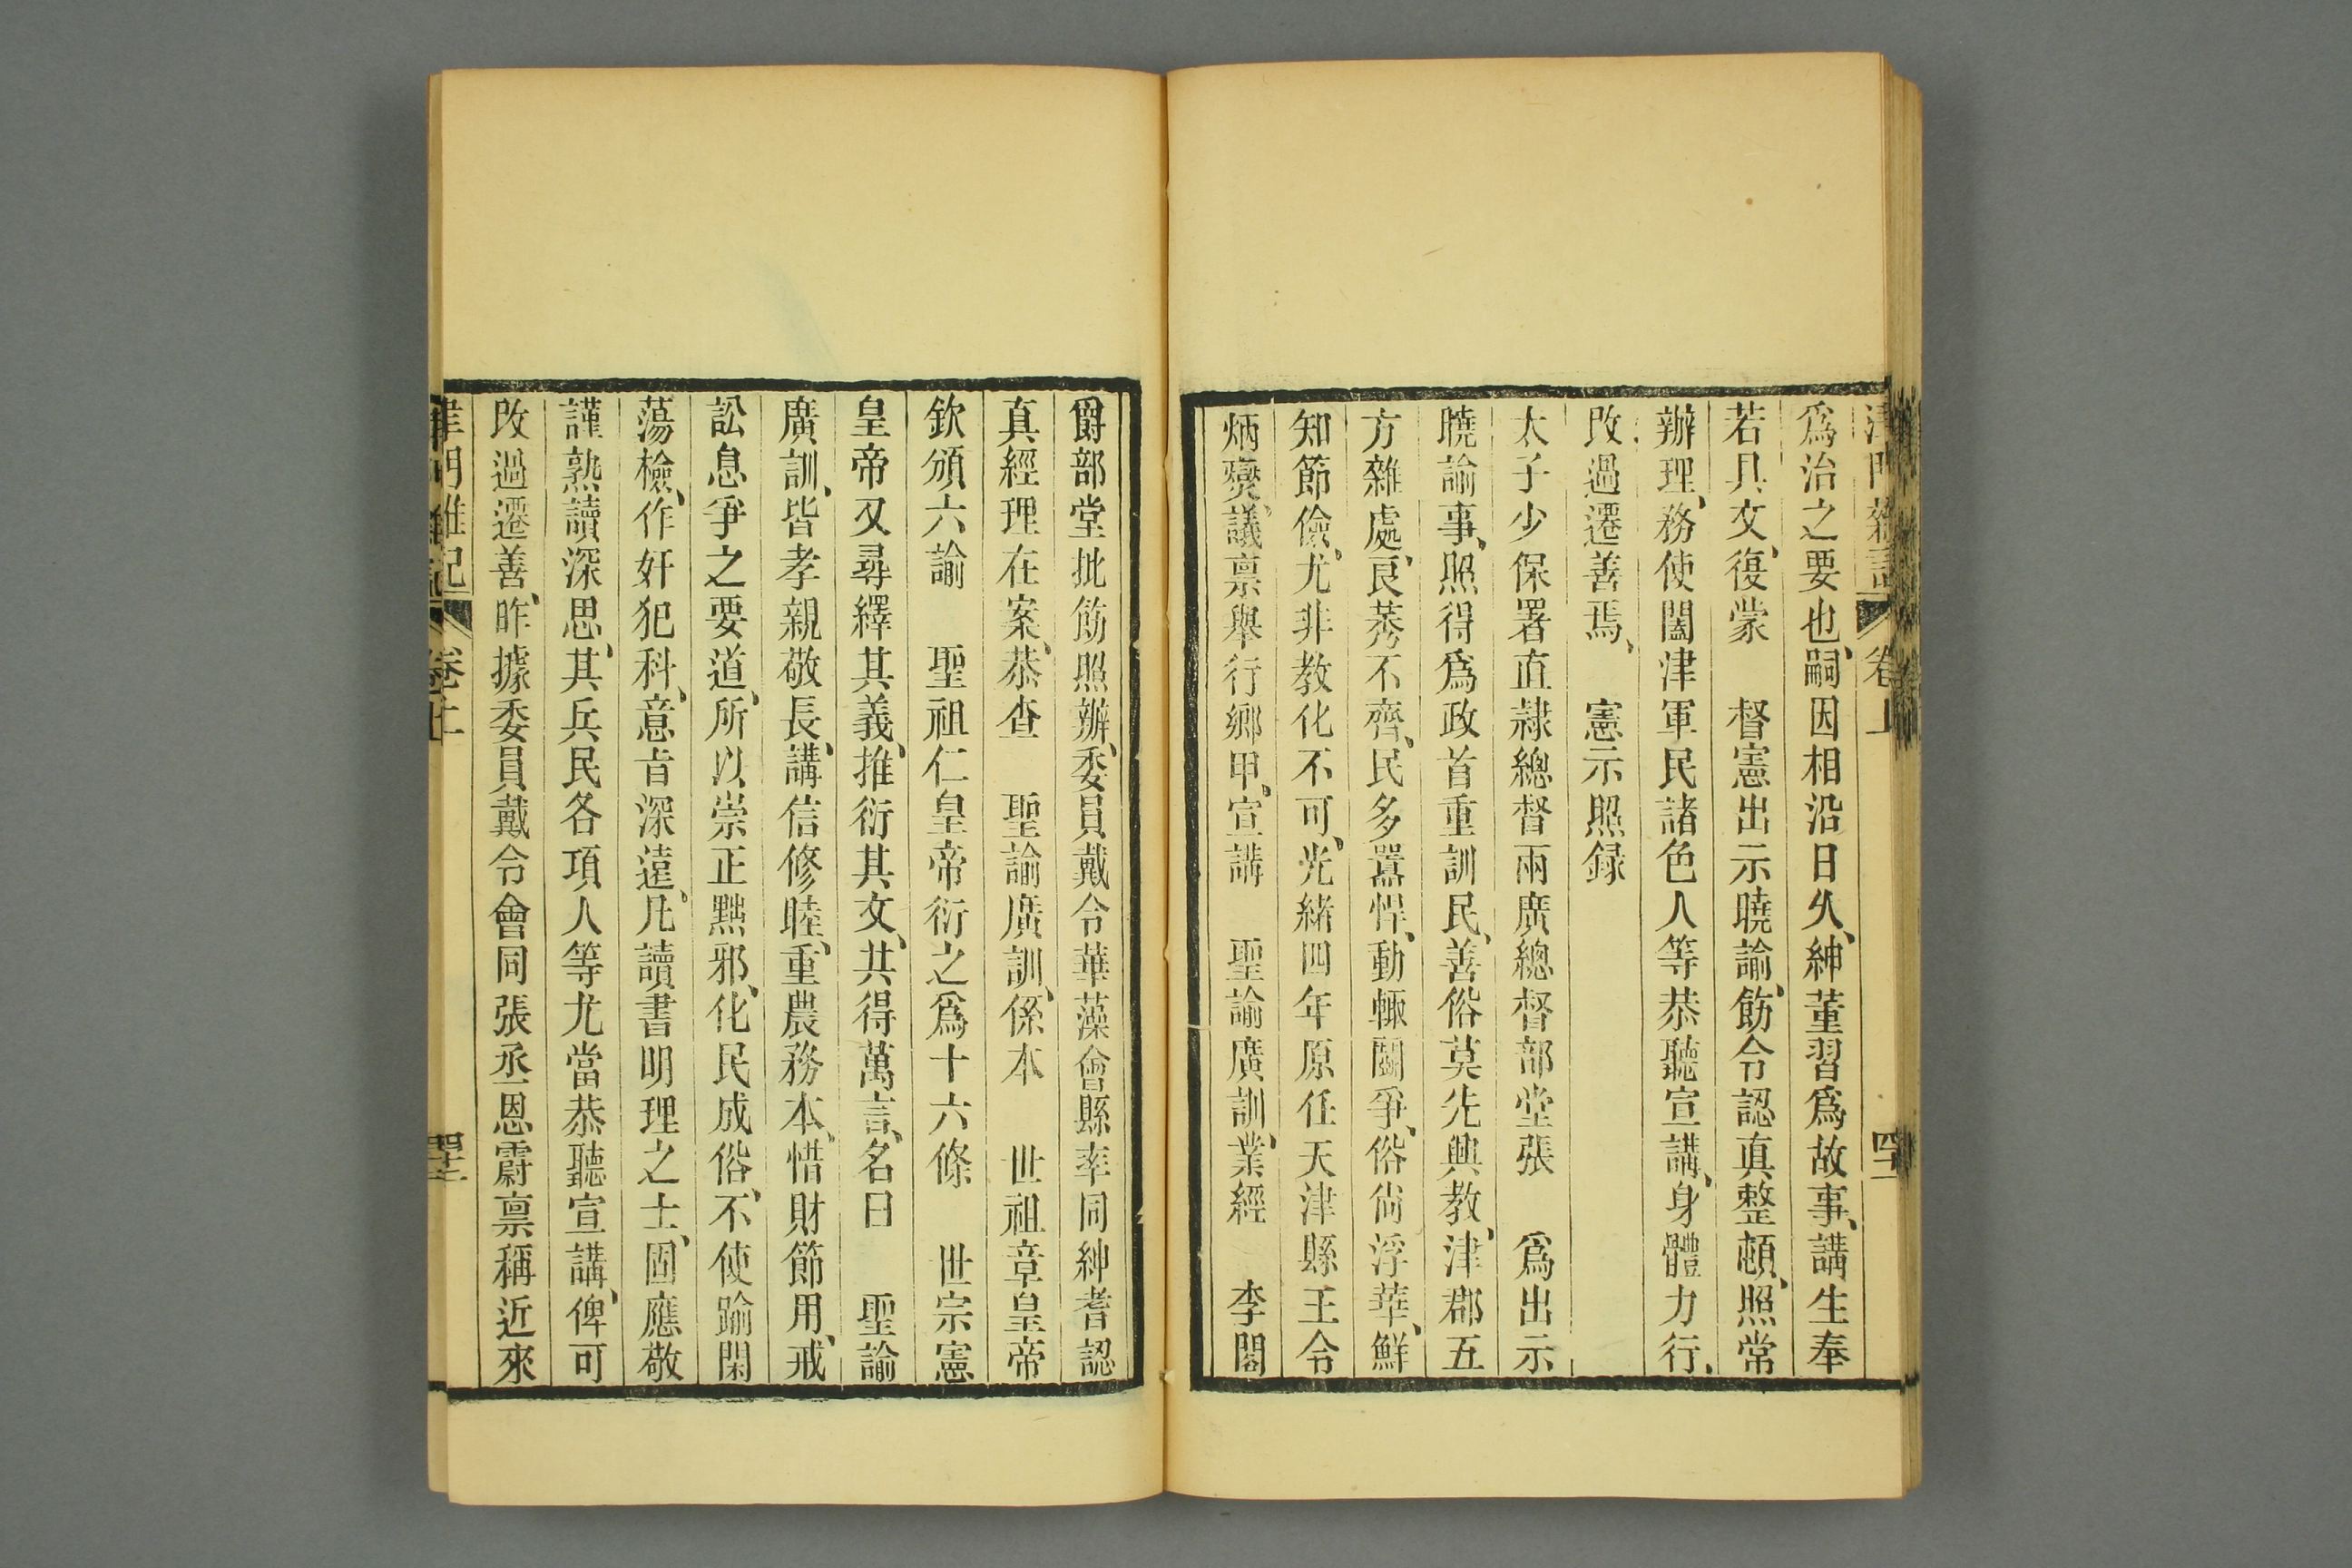 津門雜記 卷上 四十一
爲治之要也、嗣因相沿日久、紳董習爲故事、講生奉
若具文、復蒙 督憲出示曉諭、飭令認真整頓、照常
辦理、務使闔津軍民諸色人等恭聽宣講、身體力行、
改過遷善焉、 憲示照録
太子少保署直隸總督兩廣總督部堂張 爲出示
曉諭事、照得爲政首重訓民、善俗莫先興教、津郡五
方雜處、良莠不齊、民多嚚悍、動輒鬬爭、俗尚浮華、鮮
知節儉、尤非教化不可、光緒四年原任天津縣王令
炳燮、議禀舉行鄉甲、宣講 聖諭廣訓、業經 李閣
爵部堂批飭照辦、委員戴令華藻會縣率同紳耆認
真經理在案、恭查 聖諭廣訓、係本 世祖章皇帝
欽頒六諭 聖祖仁皇帝衍之爲十六條 世宗憲
皇帝又尋繹其義、推衍其文、共得萬言、名曰 聖諭
廣訓、皆孝親敬長、講信修睦、重農務本、惜財節用、戒
訟息爭之要道、所以崇正黜邪、化民成俗、不使踰閑
蕩檢、作奸犯科、意旨深遠、凡讀書明理之士、固應敬
謹熟讀深思、其兵民各項人等尤當恭聽宣講、俾可
改過遷善、昨據委員戴令會同張丞恩霨禀稱近來
津門雜記 卷上